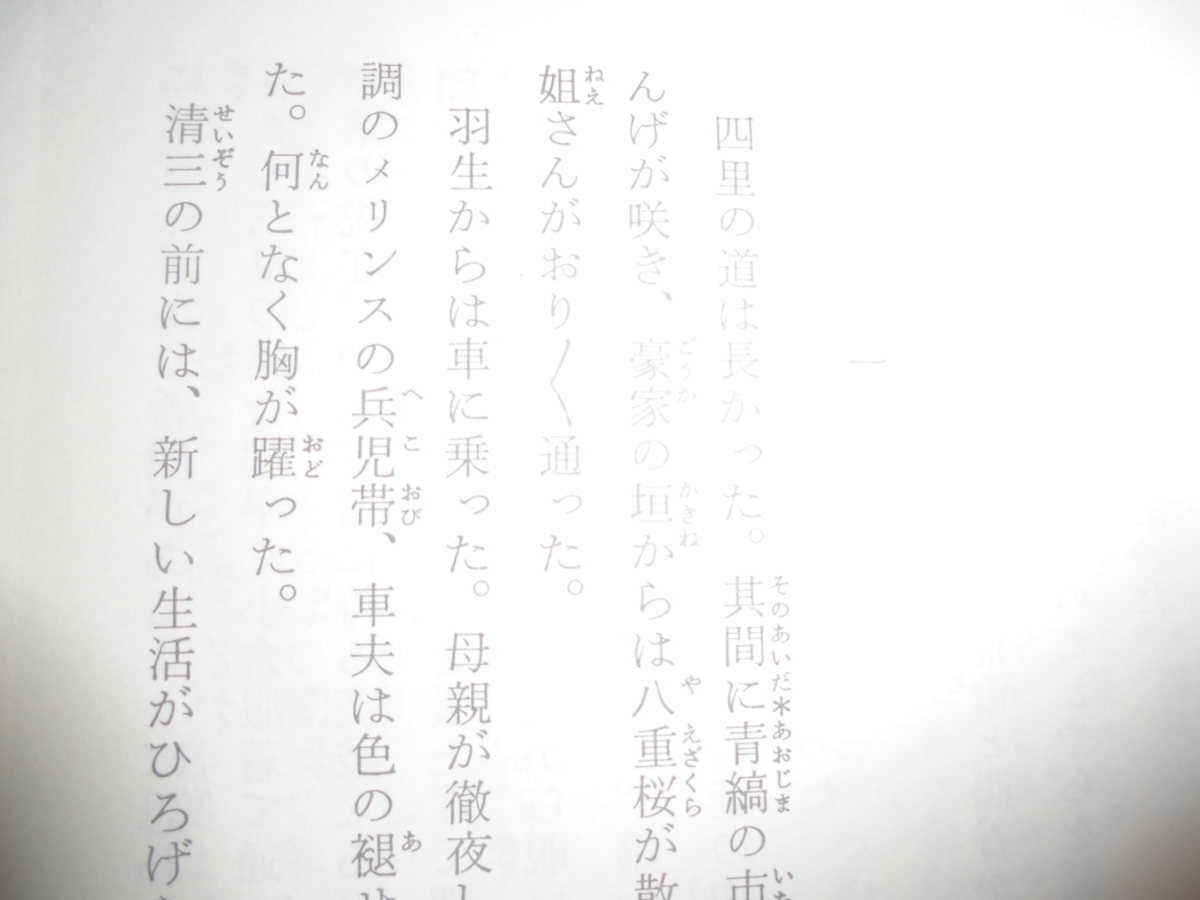 一
四里の道は長かった。其間に青縞の市
んげが咲き、豪家の垣からは八重桜が散
姐さんがおり〱通った。
羽生からは車に乗った。母親が徹夜し
調のメリンスの兵児帯、車夫は色の褪せ
た。何となく胸が躍った。
清三の前には、新しい生活がひろげ